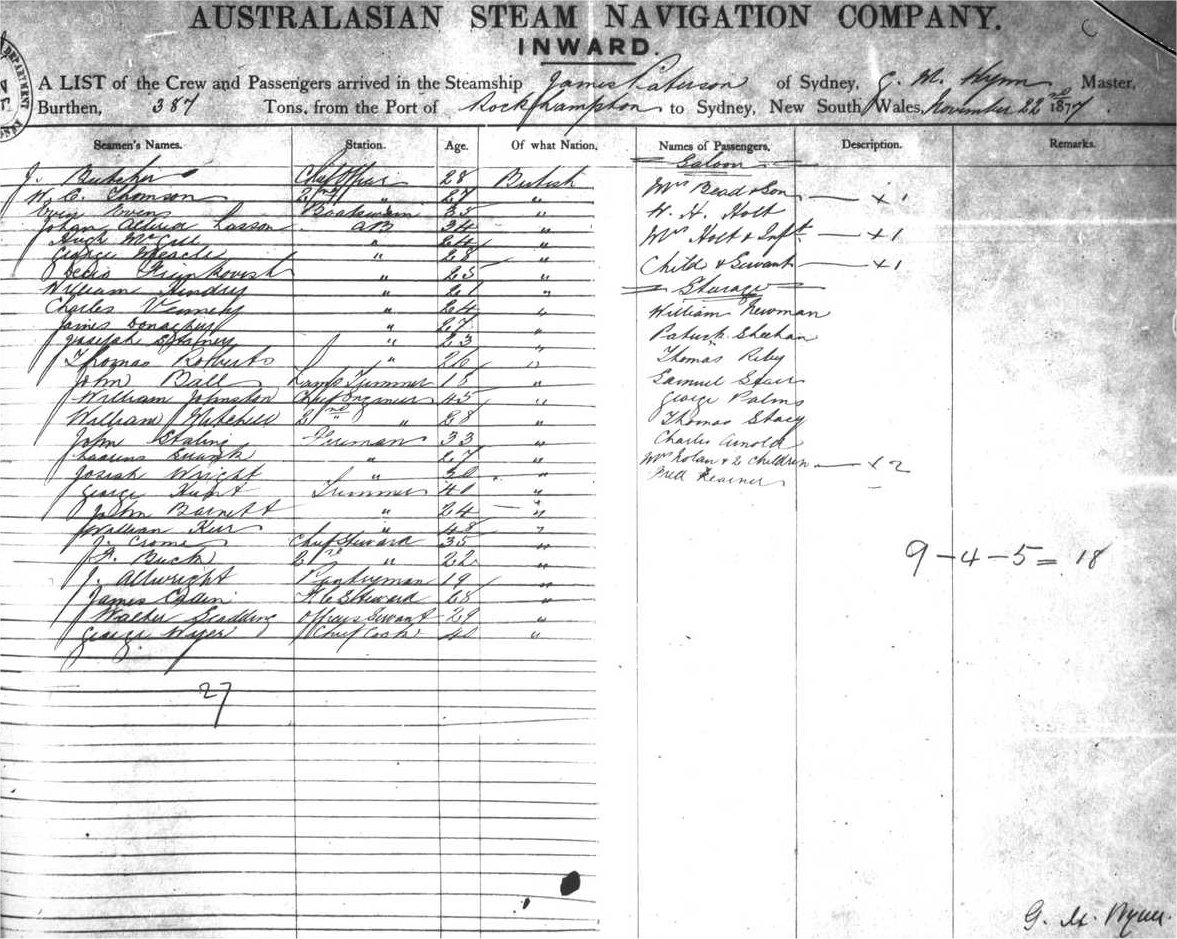 AUSTRALASIAN STEAM NAVIGATION COMPANY.
INWARD.
A LIST of the Crew and Passengers arrived in the Steamship James Paterson of Sydney, G. M. Wynn Master,
Burthen, 387 Tons, from the Port of Rockhampton to Sydney, New South Wales, November 22nd 1877.
Seamen's Names. Station. Age. Of what Nation. Names of Passengers. Description. Remarks.
Saloon
J. Butcher Chf Officer 28 British
W. C. Thomson 2nd " 27 "
Even Evens Boatswain 35 "
Johan Larsson AB 34 "
Hugh McGill " 24 "
George " 28 "
" 25 "
William Hendry " 21 "
Charles " 24 "
James " 27 "
Joseph " 23 "
Thomas Roberts " 26 "
John Ball Lamp Trimmer 18 "
William Johnston Chief Engineer 45 "
William Mitchell 2nd " 28 "
John Fireman 33 "
" 27 "
Josiah Wright " 30 "
George Trimmer 40 "
John Barnett " 24 "
William Kerr " 48 "
J. Crome Chief Steward 35 "
F. Buck 2nd " 22 "
J. Allwright Pantryman 19 "
James Steward 28 "
Walter Scadding Officers Servant 29 "
George Wyer Chief Cook 40 "
27
Mrs Bead & Son x1
H. H. Holt
Mrs Holt & Inft x1
Child & Servant x1
Sturage
William Newman
Patrick Sheehan
Thomas Riby
Samuel
George Palms
Thomas Stacy
Charles Arnold
Mrs Nolan & 2 Children x2
Fred
9 - 4 - 5 = 18
G. M. Wynn.